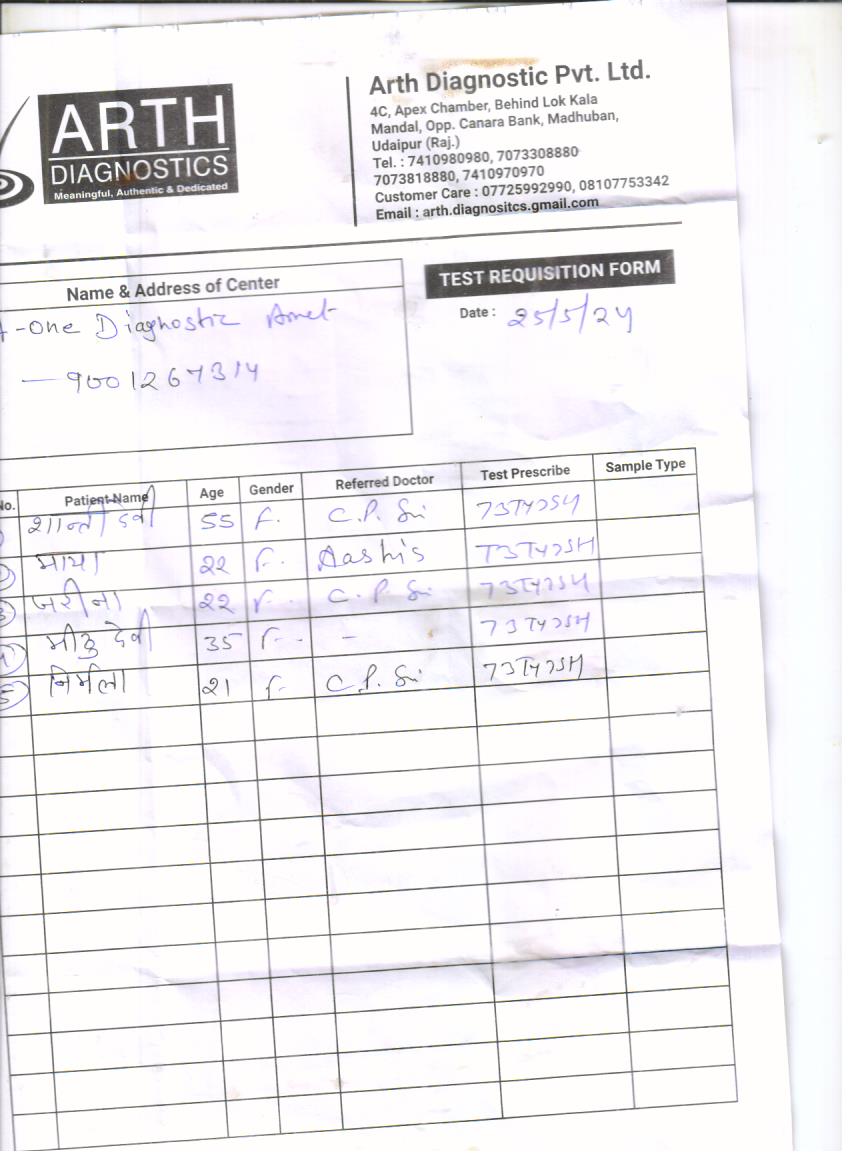 ARTH
DIAGNOSTICS
Meaningful, Authentic & Dedicated
Arth Diagnostic Pvt. Ltd.
4C, Apex Chamber, Behind Lok Kala
Mandal, Opp. Canara Bank, Madhuban,
Udaipur (Raj.)
Tel. : 7410980980, 7073308880
7073818880, 7410970970
Customer Care : 07725992990, 08107753342
Email : arth.diagnositcs.gmail.com
Name & Address of Center
TEST REQUISITION FORM
-One Diagnostic Amet
Date : 25/5/24
— 9001267314
No. Patient Name Age Gender Referred Doctor Test Prescribe Sample Type
शान्ती देवी 55 F. C.P. Sir T3T4TSH
माया 22 F. Aashis T3T4TSH
जरीना 22 F. C.P. Sir T3T4TSH
देवी 35 F. - T3T4TSH
5 निर्मला 21 F. C.P. Sir T3T4TSH